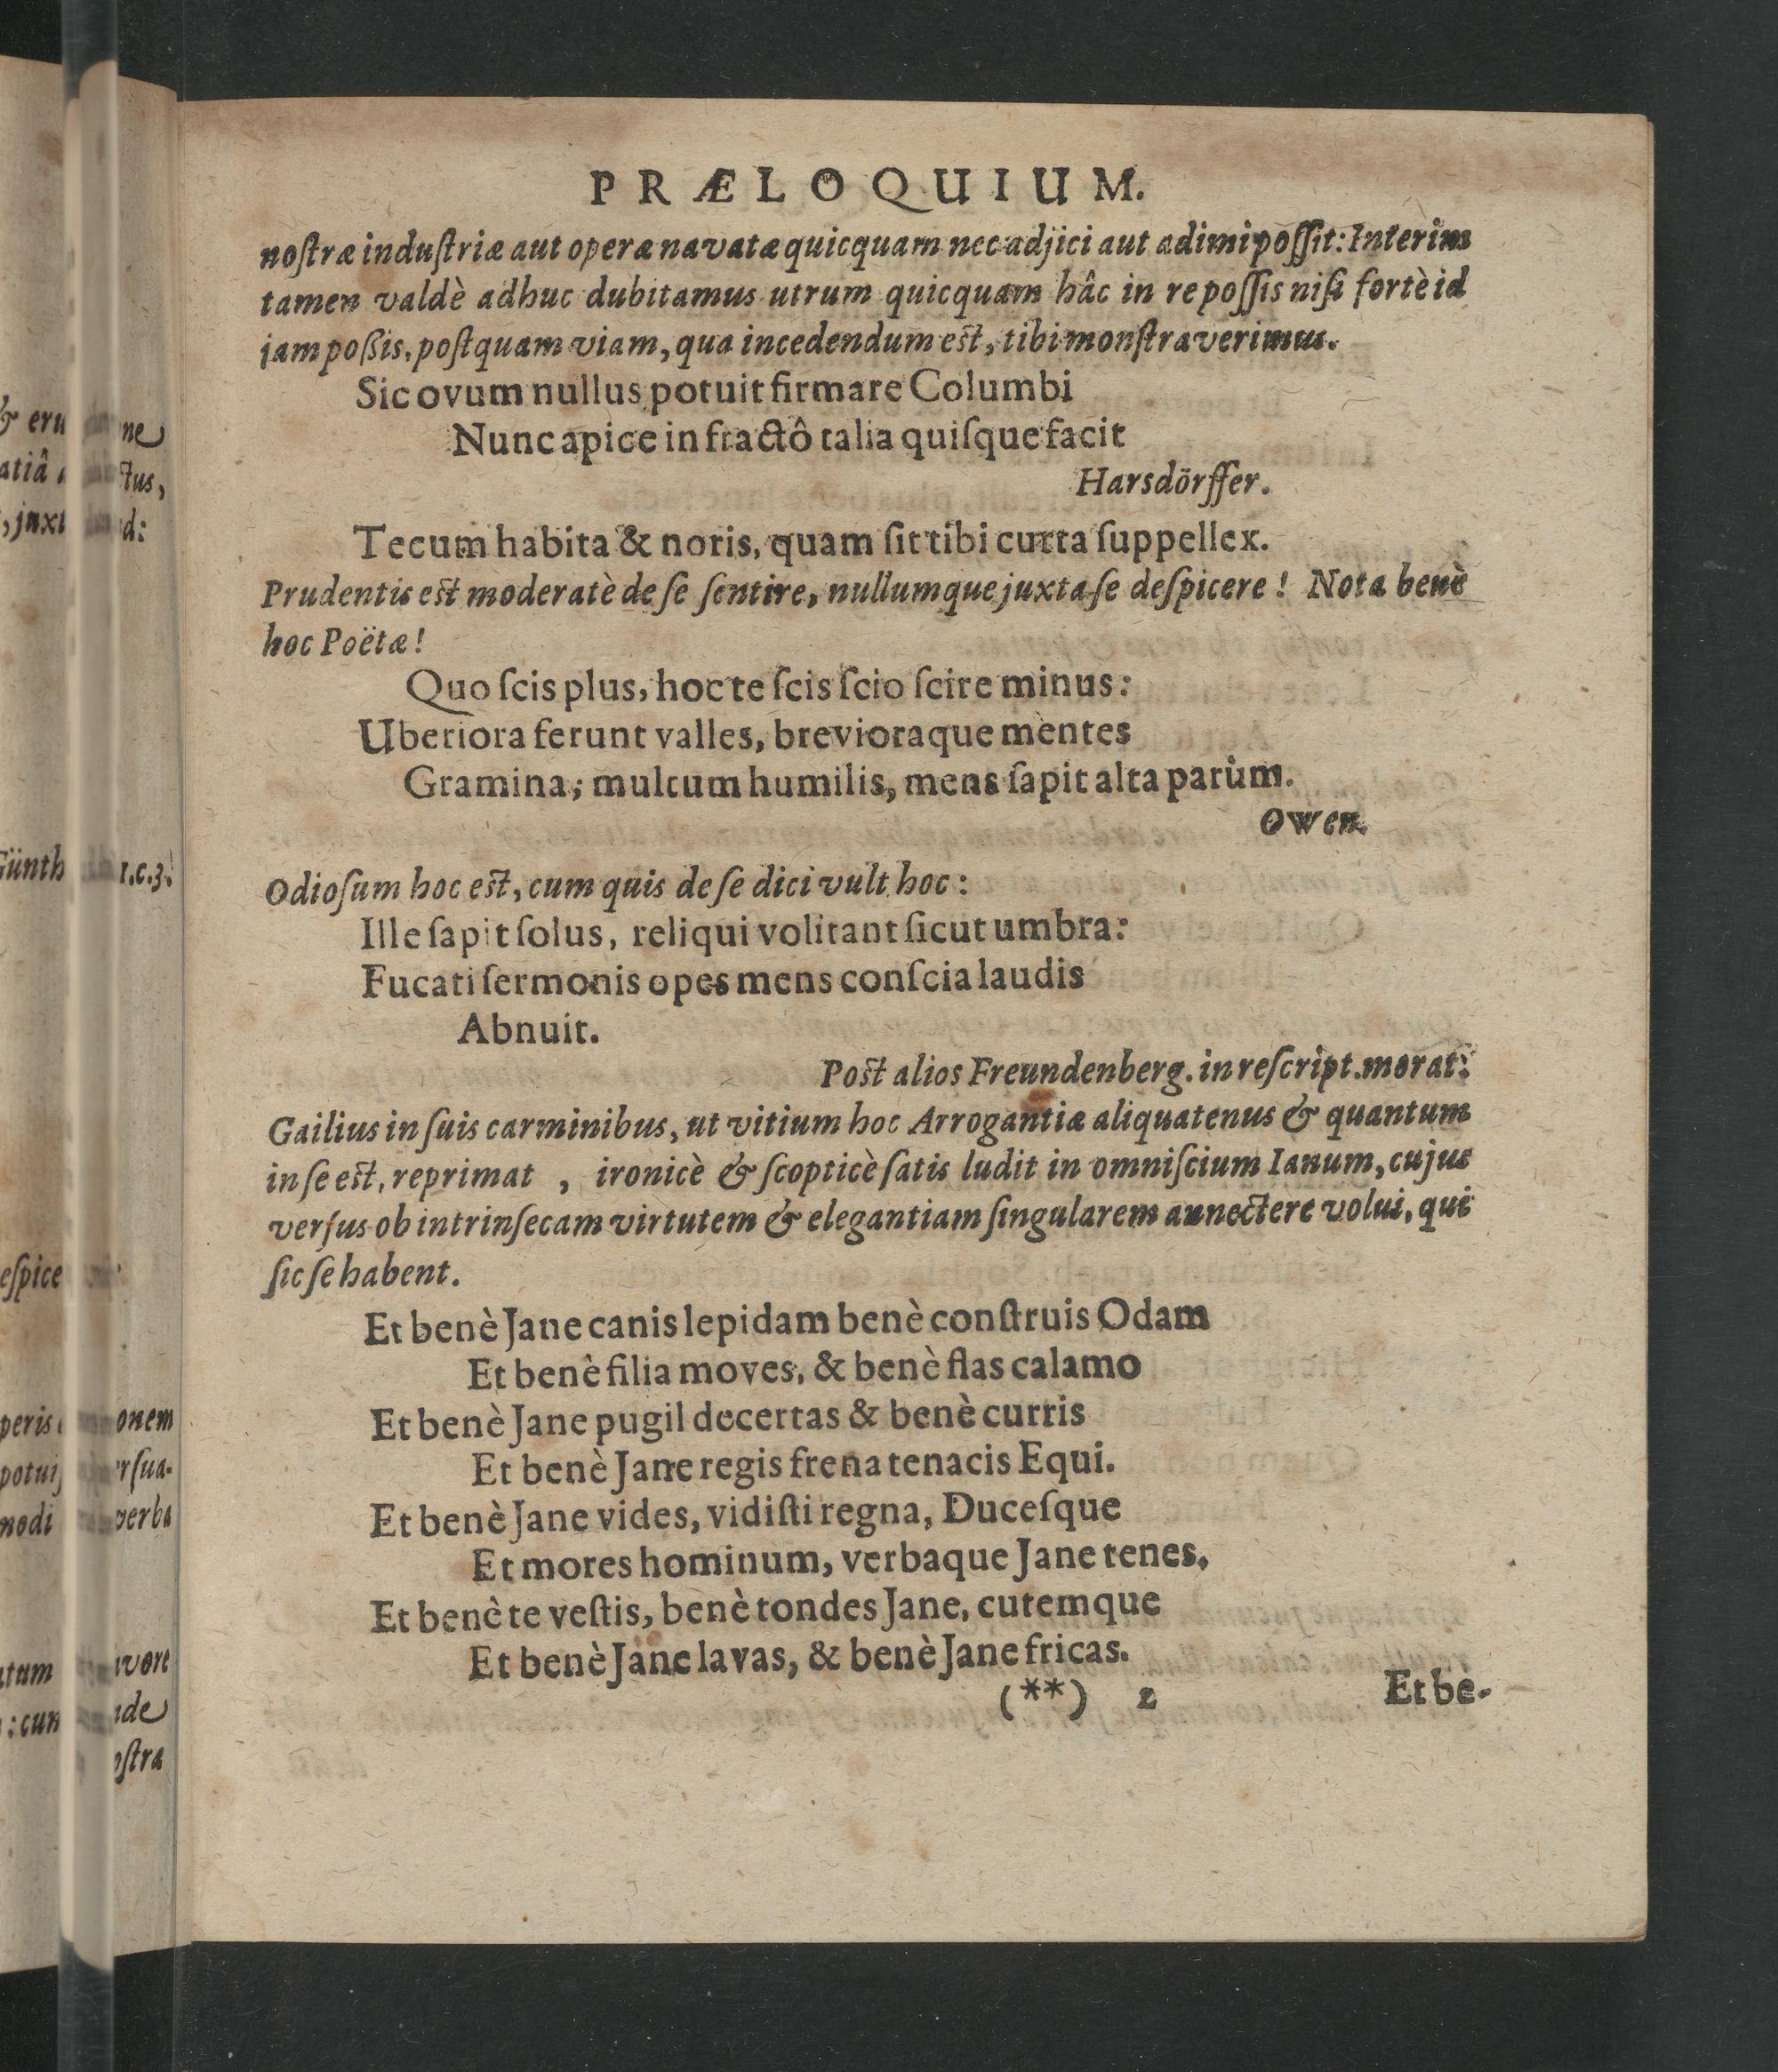 PRÆLOQUIUM.
noſtræ induſtriæ aut operæ navatæ quicquam nec adjici aut adimi poſſit: Interim
tamen valdè adhuc dubitamus utrum quicquam hâc in re poſſis niſi fortè id
jam poßis, poſtquam viam, qua incedendum est, tibi monſtraverimus.
Sic ovum nullus potuit firmare Columbi
Nunc apice in fractô talia quiſque facit
Harsdörffer.
Tecum habita & noris, quam ſit tibi curta ſuppellex.
Prudentis est moderatè de ſe ſentire, nullumque juxta ſe deſpicere! Nota benè
hoc Poëtæ!
Quo ſcis plus, hoc te ſcis ſcio ſcire minus:
Uberiora ferunt valles, brevioraque mentes
Gramina; multum humilis, mens ſapit alta parùm.
Owen.
Odioſum hoc est, cum quis de ſe dici vult hoc:
Ille ſapit ſolus, reliqui volitant ſicut umbra:
Fucati ſermonis opes mens conſcia laudis
Abnuit.
Post alios Freundenberg. in reſcript. morat.
Gailius in ſuis carminibus, ut vitium hoc Arrogantiæ aliquatenus & quantum
in ſe est, reprimat , ironicè & ſcopticè ſatis ludit in omniſcium Ianum, cujus
verſus ob intrinſecam virtutem & elegantiam ſingularem annectere volui, qui
ſic ſe habent.
Et benè Jane canis lepidam benè conſtruis Odam
Et benè filia moves, & benè flas calamo
Et benè Jane pugil decertas & benè curris
Et benè Jane regis frena tenacis Equi.
Et benè Jane vides, vidiſti regna, Duceſque
Et mores hominum, verbaque Jane tenes,
Et benè te veſtis, benè tondes Jane, cutemque
Et benè Jane lavas, & benè Jane fricas.
(**) 2 Et be-